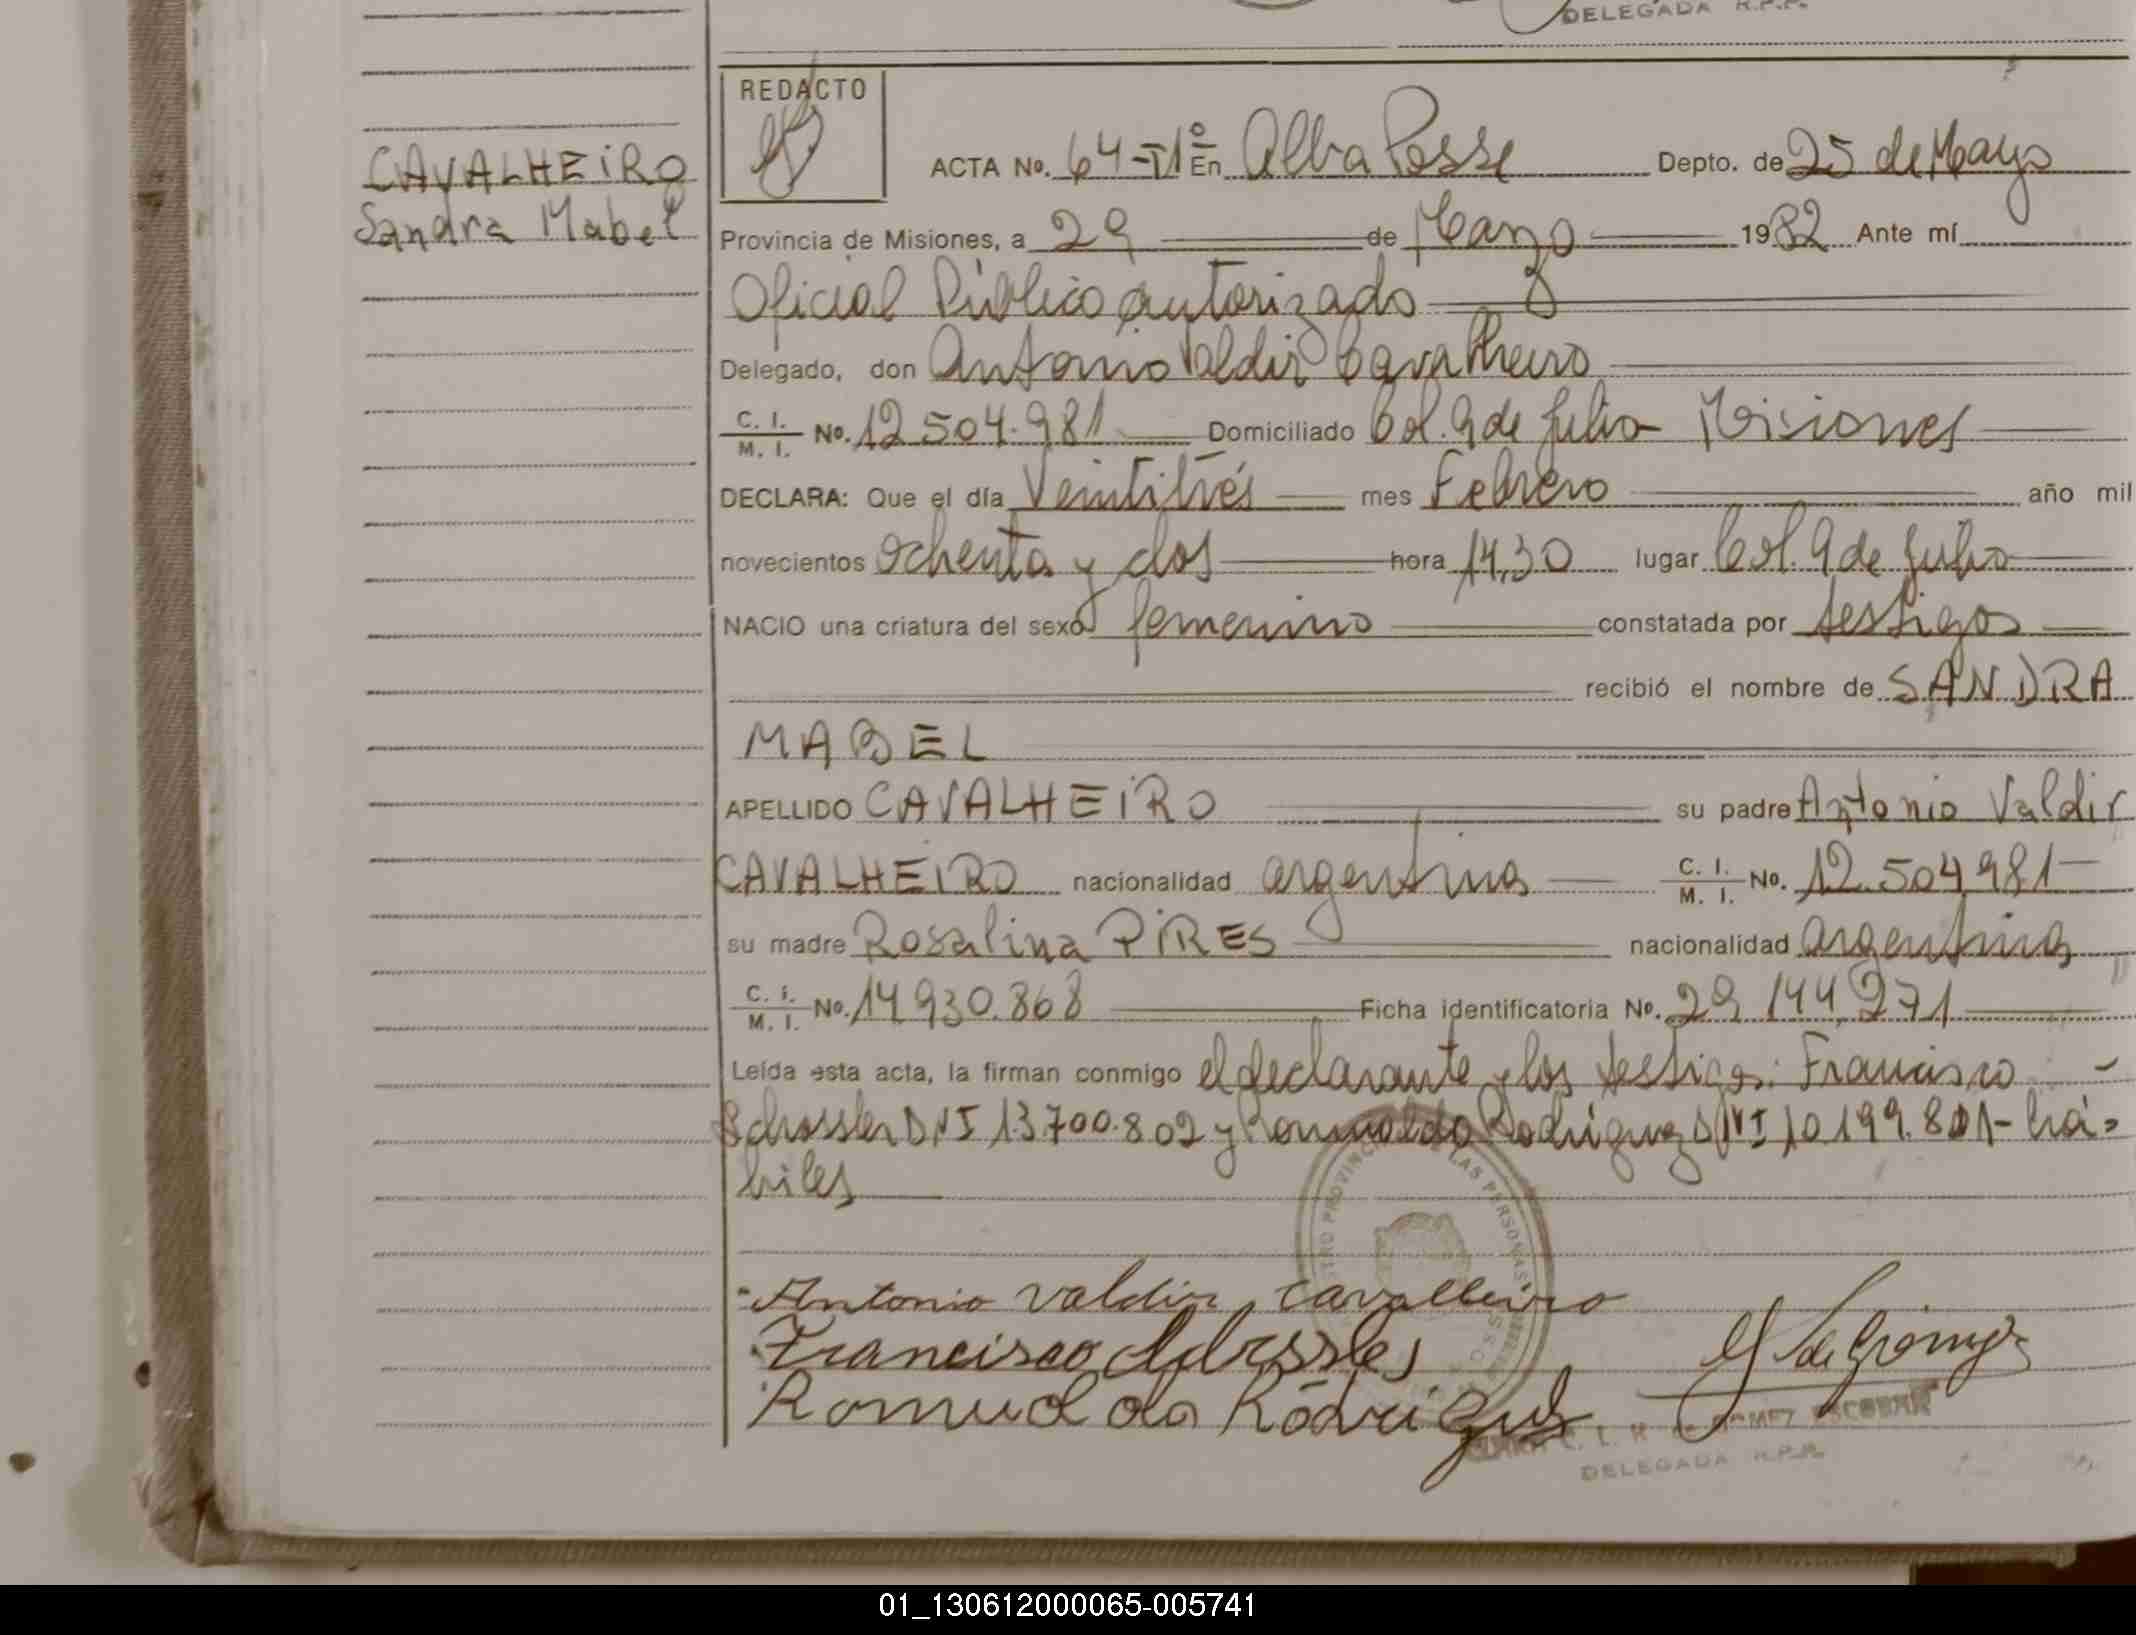 DELEGADA R.P.P.
REDACTO
CAVALHEIRO
Sandra Mabel
ACTA No. 64-T1º En Alba Posse Depto. de 25 de Mayo
Provincia de Misiones, a 29 de Marzo 1982 Ante mí
Oficial Público autorizado
Delegado, don Antonio Valdir Cavalheiro
C. I. / M. I. No. 12.504.981 Domiciliado Col. 9 de Julio Misiones
DECLARA: Que el día Veintitrés mes Febrero año mil
novecientos ochenta y dos hora 14,30 lugar Col. 9 de Julio
NACIO una criatura del sexo femenino constatada por testigos
recibió el nombre de SANDRA
MABEL
APELLIDO CAVALHEIRO su padre Antonio Valdir
CAVALHEIRO nacionalidad argentina C. I. / M. I. No. 12.504.981
su madre Rosalina PIRES nacionalidad argentina
C. I. / M. I. No. 14.930.868 Ficha identificatoria No. 29.144.271
Leída esta acta, la firman conmigo el declarante y los testigos: Francisco
Schossler DNI 13.700.802 y Romualdo Rodriguez DNI 10.199.801- há=
biles
Antonio Valdir Cavalleiro
Francisco Schossler
Romualdo Rodriguez
GOMEZ ESCOBAR
DELEGADA R.P.P.
01_130612000065-005741